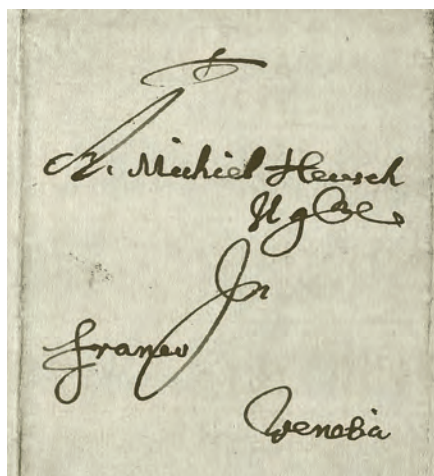 A. Michiel Heusch
In
franco
Venetia